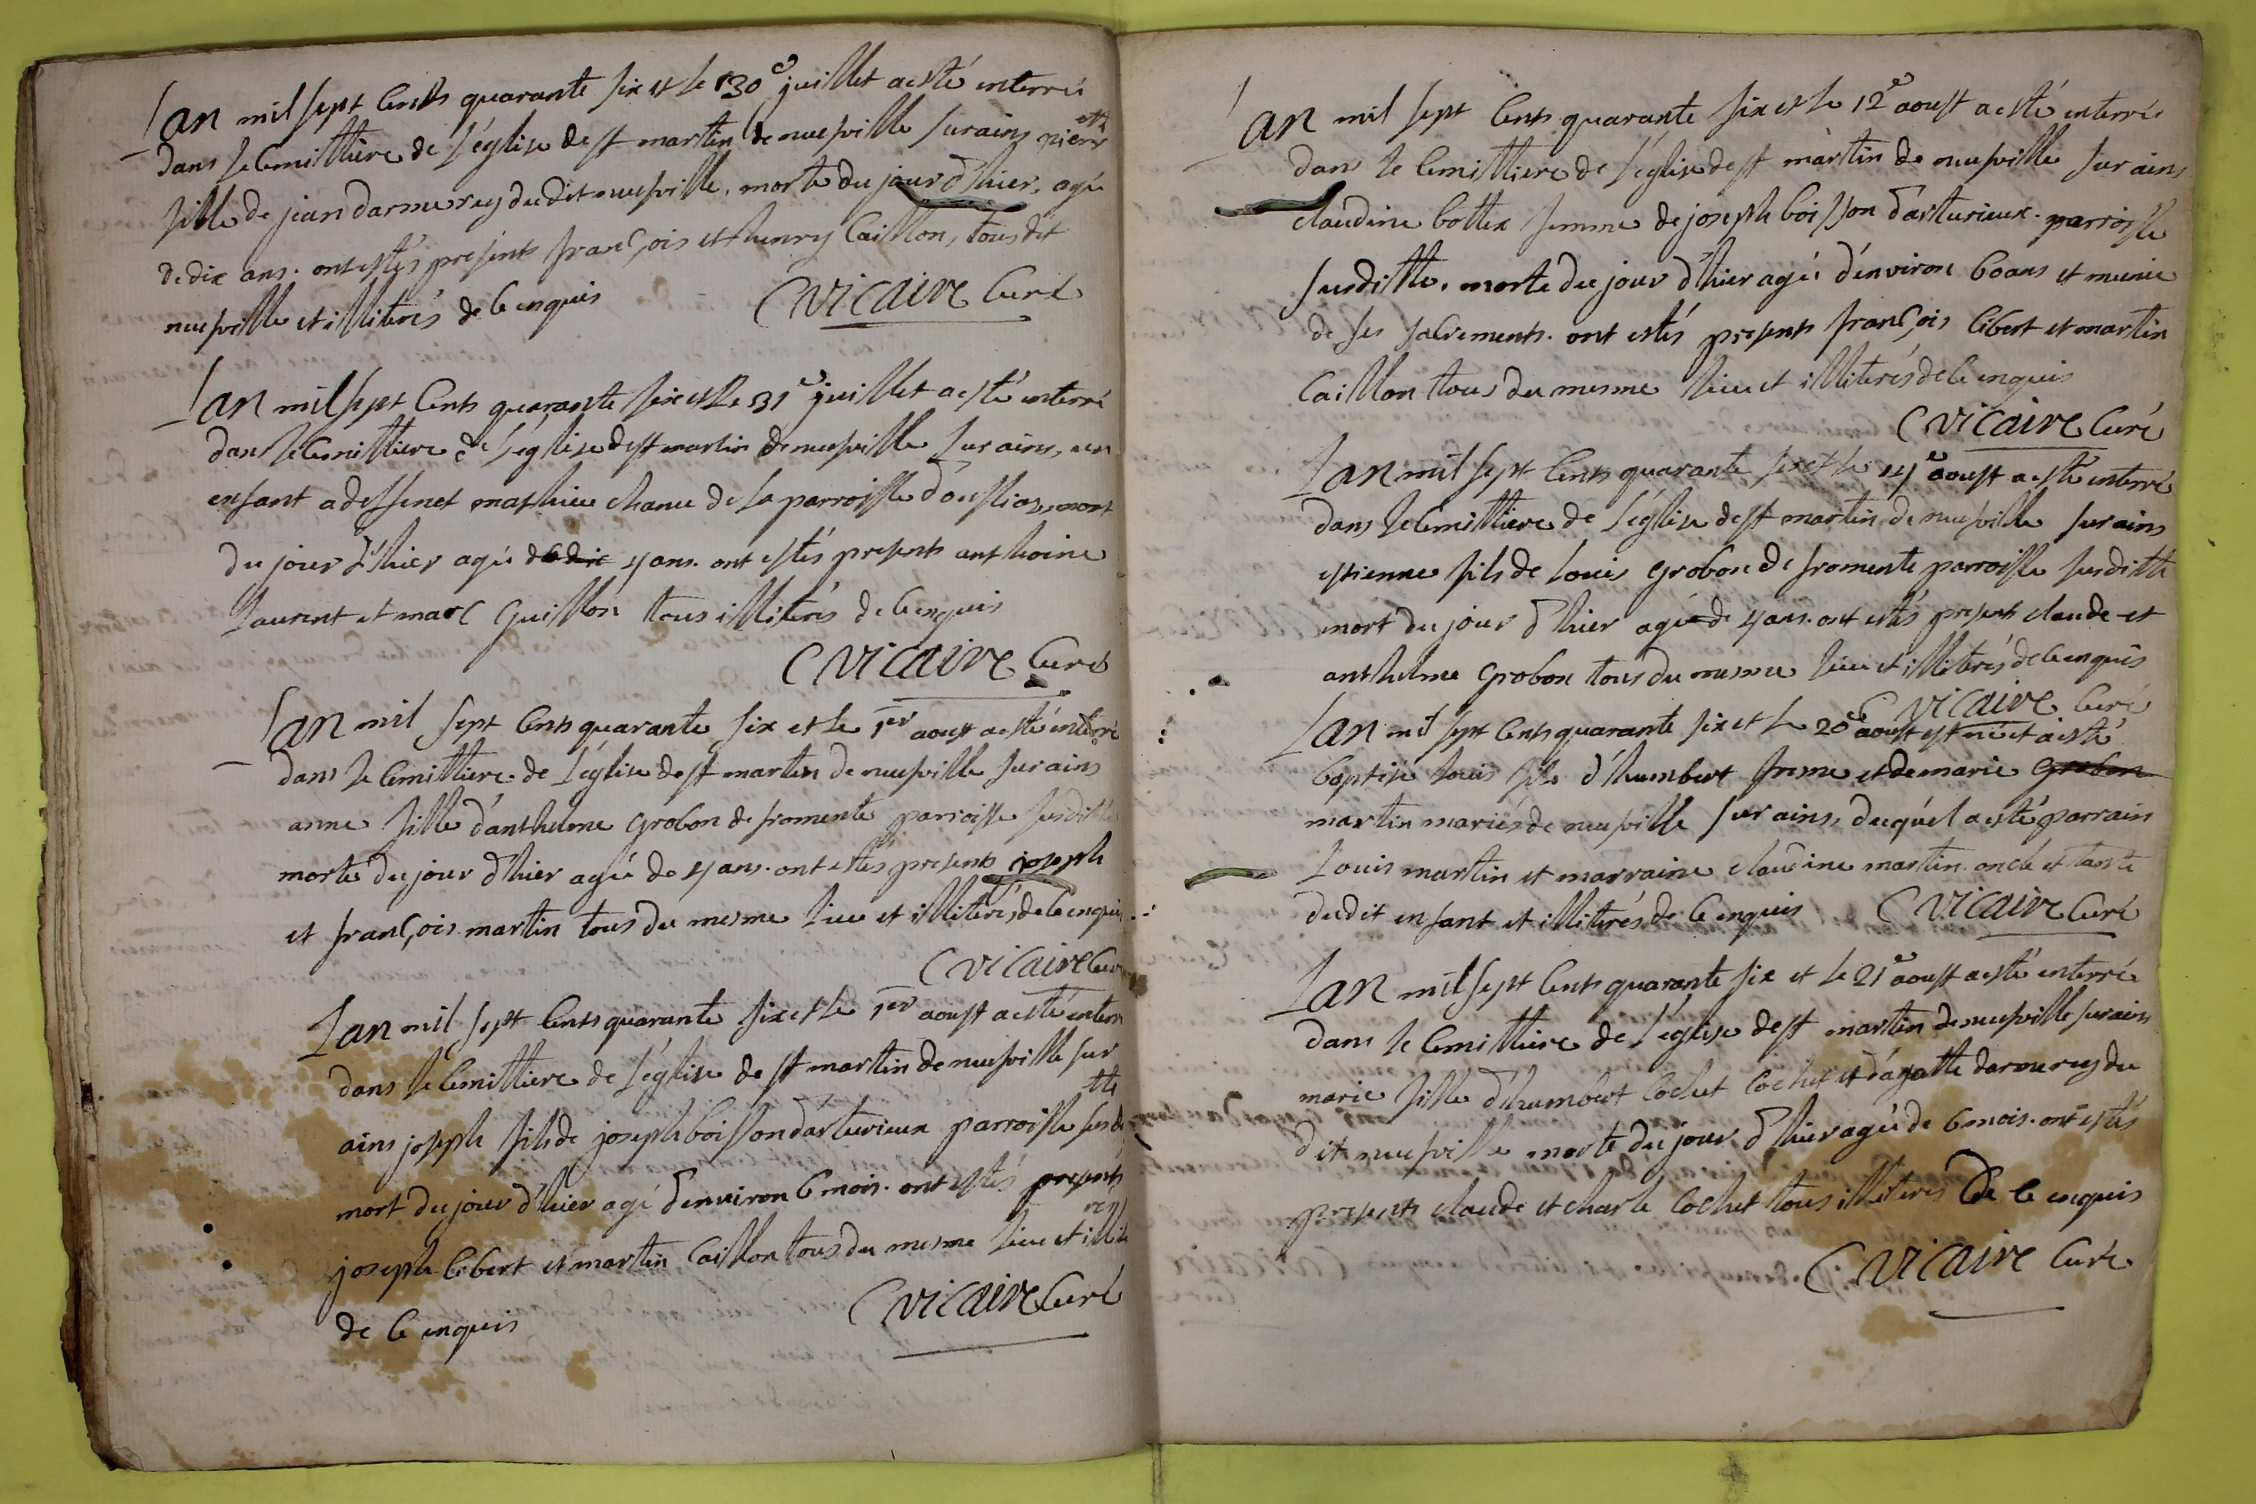 Lan mil sept cents quarante six et le 30e juillet a esté enterrée
dans le cemittiere de l'église de st martin de neufville sur ains pierrette
fille de jean darmerey dudit neufville, morte du jour d'hier, agée
de dix ans. ont estés presents françois et henry Caillon, tous dit
neufville et illiterés de ce enquis
C vicaire Curé
Lan mil sept cents quarante six et le 31e juillet a esté enterré
dans le cemittiere de l'église de st martin de neufville sur ains, un
enfant mathieu de la parroisse mort
du jour d'hier agé de dix 4 ans. ont estés presents anthoine
Laurent et marc Guillon tous illiterés de ce enquis
C vicaire Curé
Lan mil sept cents quarante six et le 1er aoust a esté enterré
dans le cemittiere de l'église de st martin de neufville sur ains
anne fille d'anthelme Grobon de fromente parroisse susditte
morte du jour d'hier agée de 4 ans. ont estés presents joseph
et françois martin tous du mesme lieu et illiterés de ce enquis
C vicaire Curé
Lan mil sept cents quarante six et le 1er aoust a esté enterré
dans le cemittiere de l'église de st martin de neufville sur
ains joseph fils de joseph boisson d'arturieux parroisse susditte
mort du jour d'hier agé d'environ 6 mois. ont estés presents
joseph Cibert et martin Caillon tous du mesme lieu et illiterés
de ce enquis
C vicaire Curé
Lan mil sept cents quarante six et le 12e aoust a esté enterrée
dans le cemittiere de l'église de st martin de neufville sur ains
claudine bottex femme de joseph boisson d'arturieux parroisse
susditte. morte du jour d'hier agée d'environ 60 ans et munie
de ses sacrements. ont estés presents françois Cibert et martin
Caillon tous du mesme lieu et illiterés de ce enquis
C vicaire Curé
Lan mil sept cents quarante six et le aoust a esté enterré
dans le cemittiere de l'église de st martin de neufville sur ains
estienne fils de Louis Grobon de fromente parroisse susditte
mort du jour d'hier agé de 4 ans. ont estés presents claude et
anthelme Grobon tous du mesme lieu et illiterés de ce enquis
C vicaire Curé
Lan mil sept cents quarante six et le 20e aoust est né et a esté
baptisé Louis fils d'humbert et de marie Grobon
martin mariés de neufville sur ains, duquel a esté parrain
Louis martin et marraine claudine martin oncle et tante
dudit enfant et illiterés de ce enquis C vicaire Curé
Lan mil sept cents quarante six et le 21e aoust a esté enterrée
dans le cemittiere de l'église de st martin de neufville sur ains
marie fille d'humbert Cochet Cochet et d'agatte darmerey du
dit neufville morte du jour d'hier agée de 6 mois. ont estés
presents claude et charle Cochet tous illiterés de ce enquis
C vicaire Curé